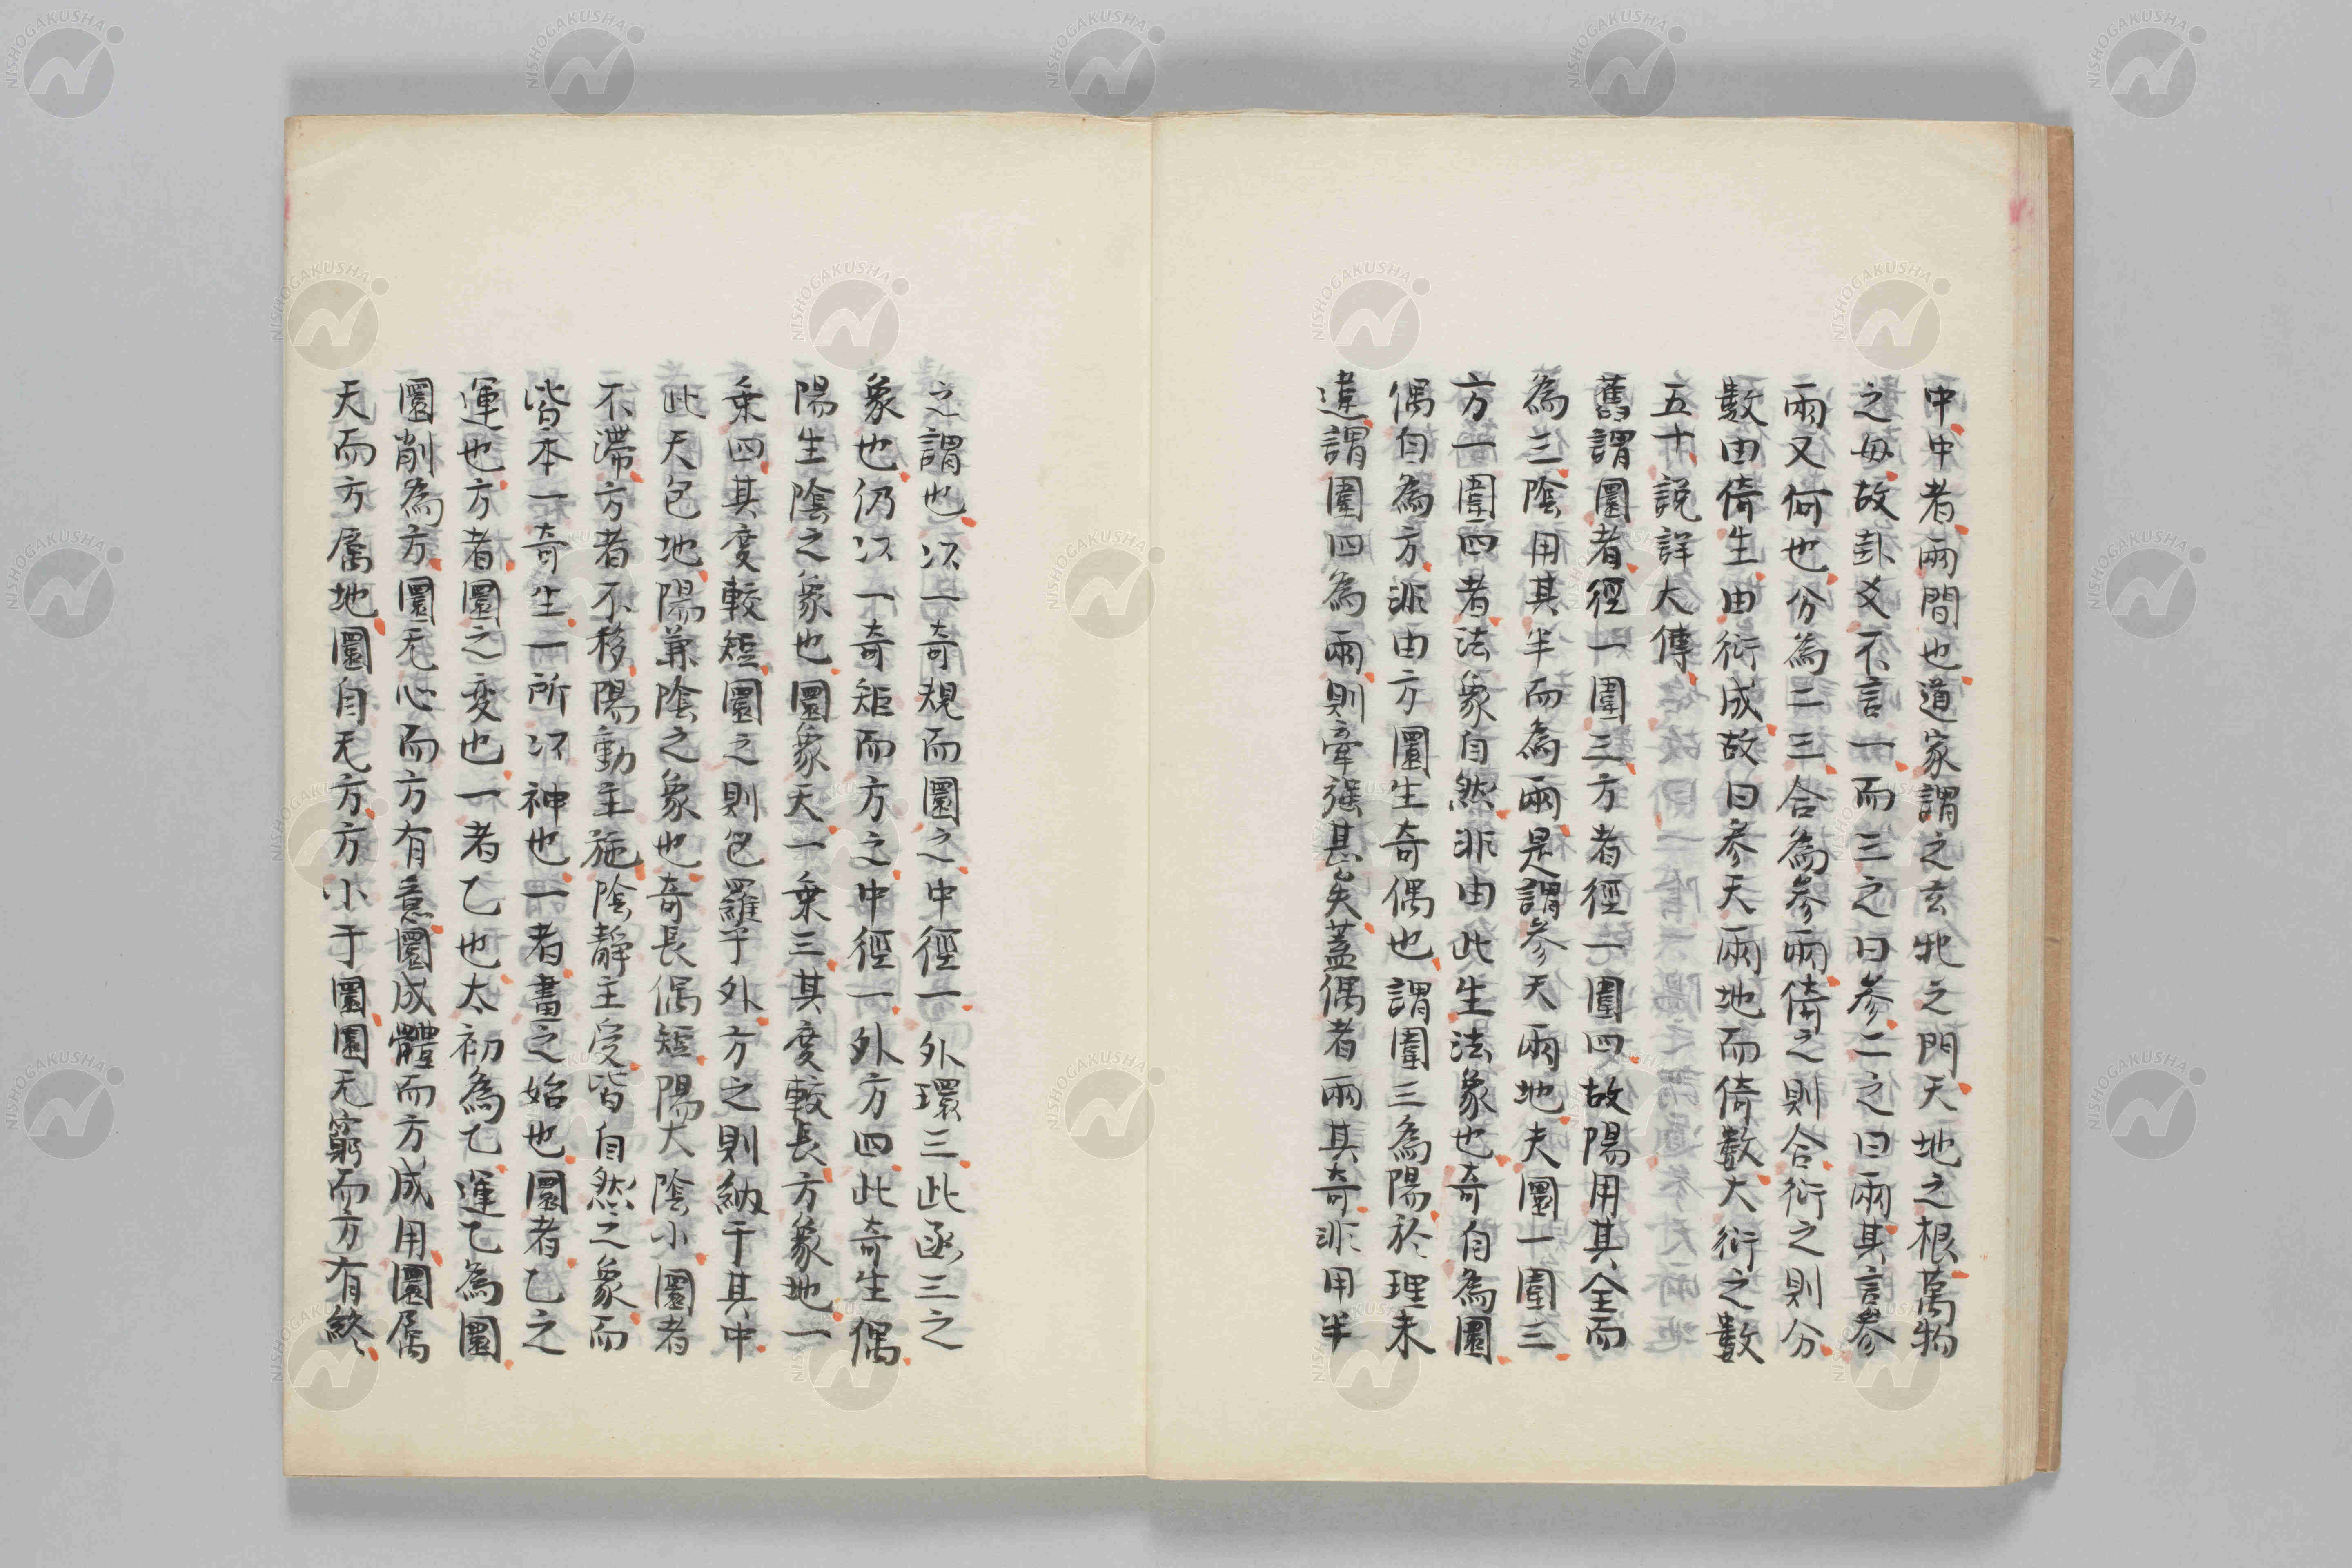 中中者兩間也道家謂之玄牝之門天地之根萬物
之毋故卦爻不言一而三之曰參二之曰兩其言參
兩又何也分為二三合為參兩倚之則合衍之則分
數由倚生由衍成故曰參天兩地而倚數大衍之數
五十說詳大傳
舊謂圜者徑一圍三方者徑一圍四故陽用其全而
為三陰用其半而為兩是謂參天兩地夫圜一圍三
方一圍四者法象自然非由此生法象也奇自為圜
偶自為方非由方圜生奇偶也謂圍三為陽於理未
違謂圍四為兩則牽强甚矣蓋偶者兩其奇非用半
之謂也㳄一奇規而圜之中徑一外環三此函三之
象也仍㳄一奇矩而方之中徑一外方四此奇生偶
陽生陰之象也圜象天一乗三其度較長方象地一
乗四其度較短圜之則包羅乎外方之則納于其中
此天包地陽兼陰之象也奇長偶短陽大陰小圜者
不滯方者不移陽動主施陰靜主受皆自然之象而
皆本一奇生一所㳄神也一者畫之始也圜者乙之
運也方者圜之变也一者乙也太初為乙運乙為圜
圜削為方圜无心而方有意圜成體而方成用圜属
天而方属地圜自无方方小于圜圜无窮而方有終
NISHOGAKUSHA